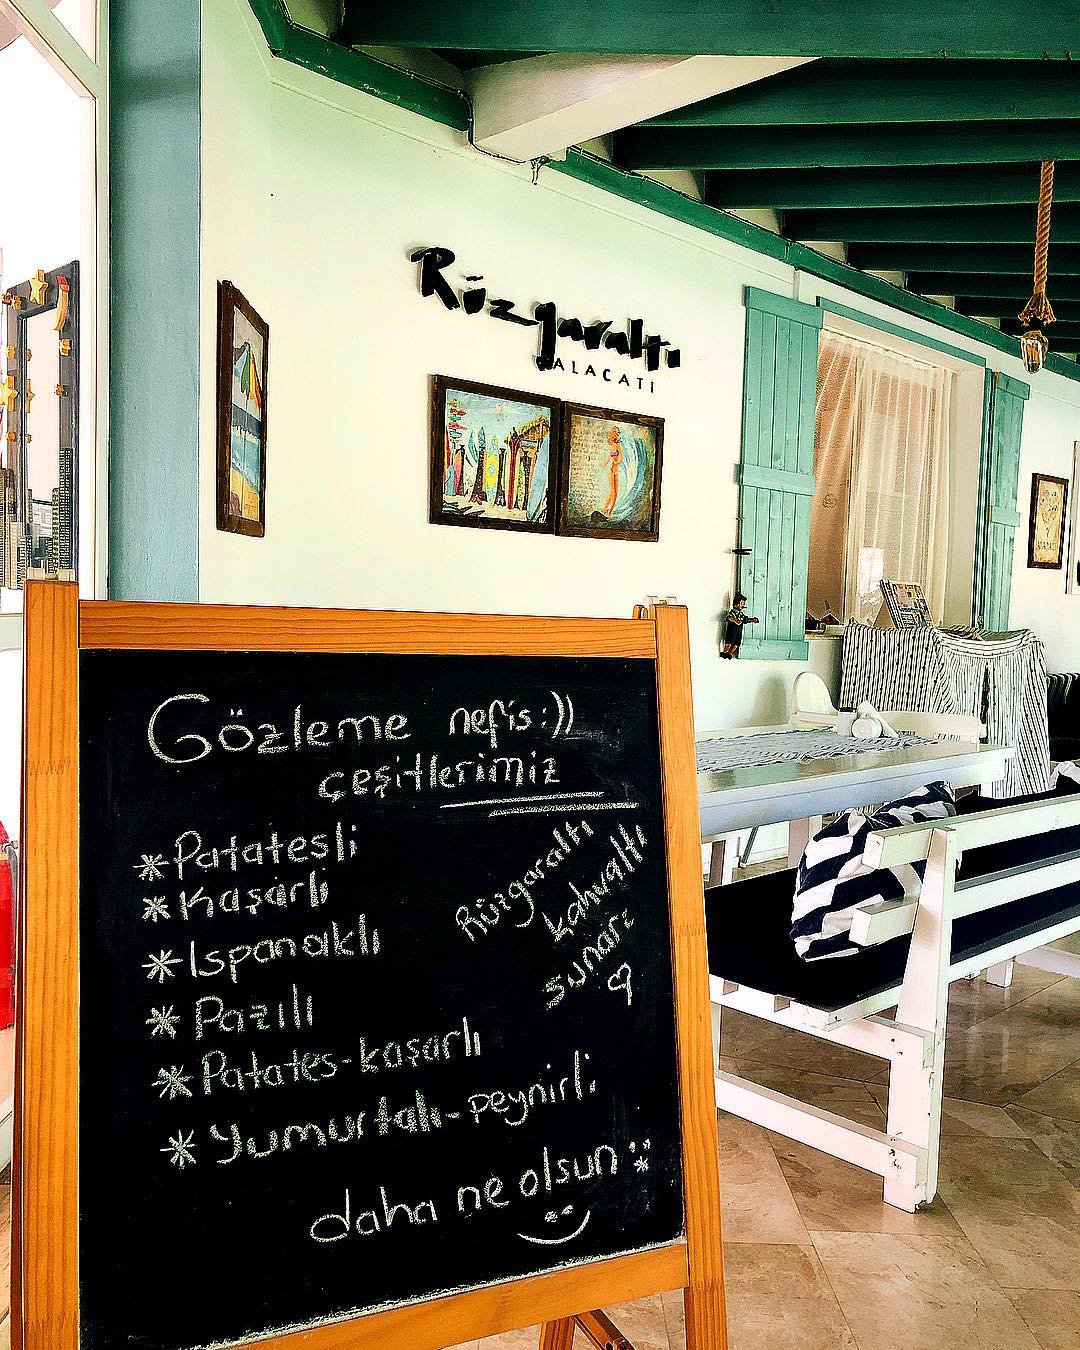 Rüzgaraltı
ALAÇATI
Gözleme nefis :))
çeşitlerimiz
*Patatesli
*Kaşarlı
*Ispanaklı
*Pazılı
*Patates-kaşarlı
*Yumurtalı-peynirli
Rüzgaraltı
kahvaltı
sunarz
daha ne olsun :*